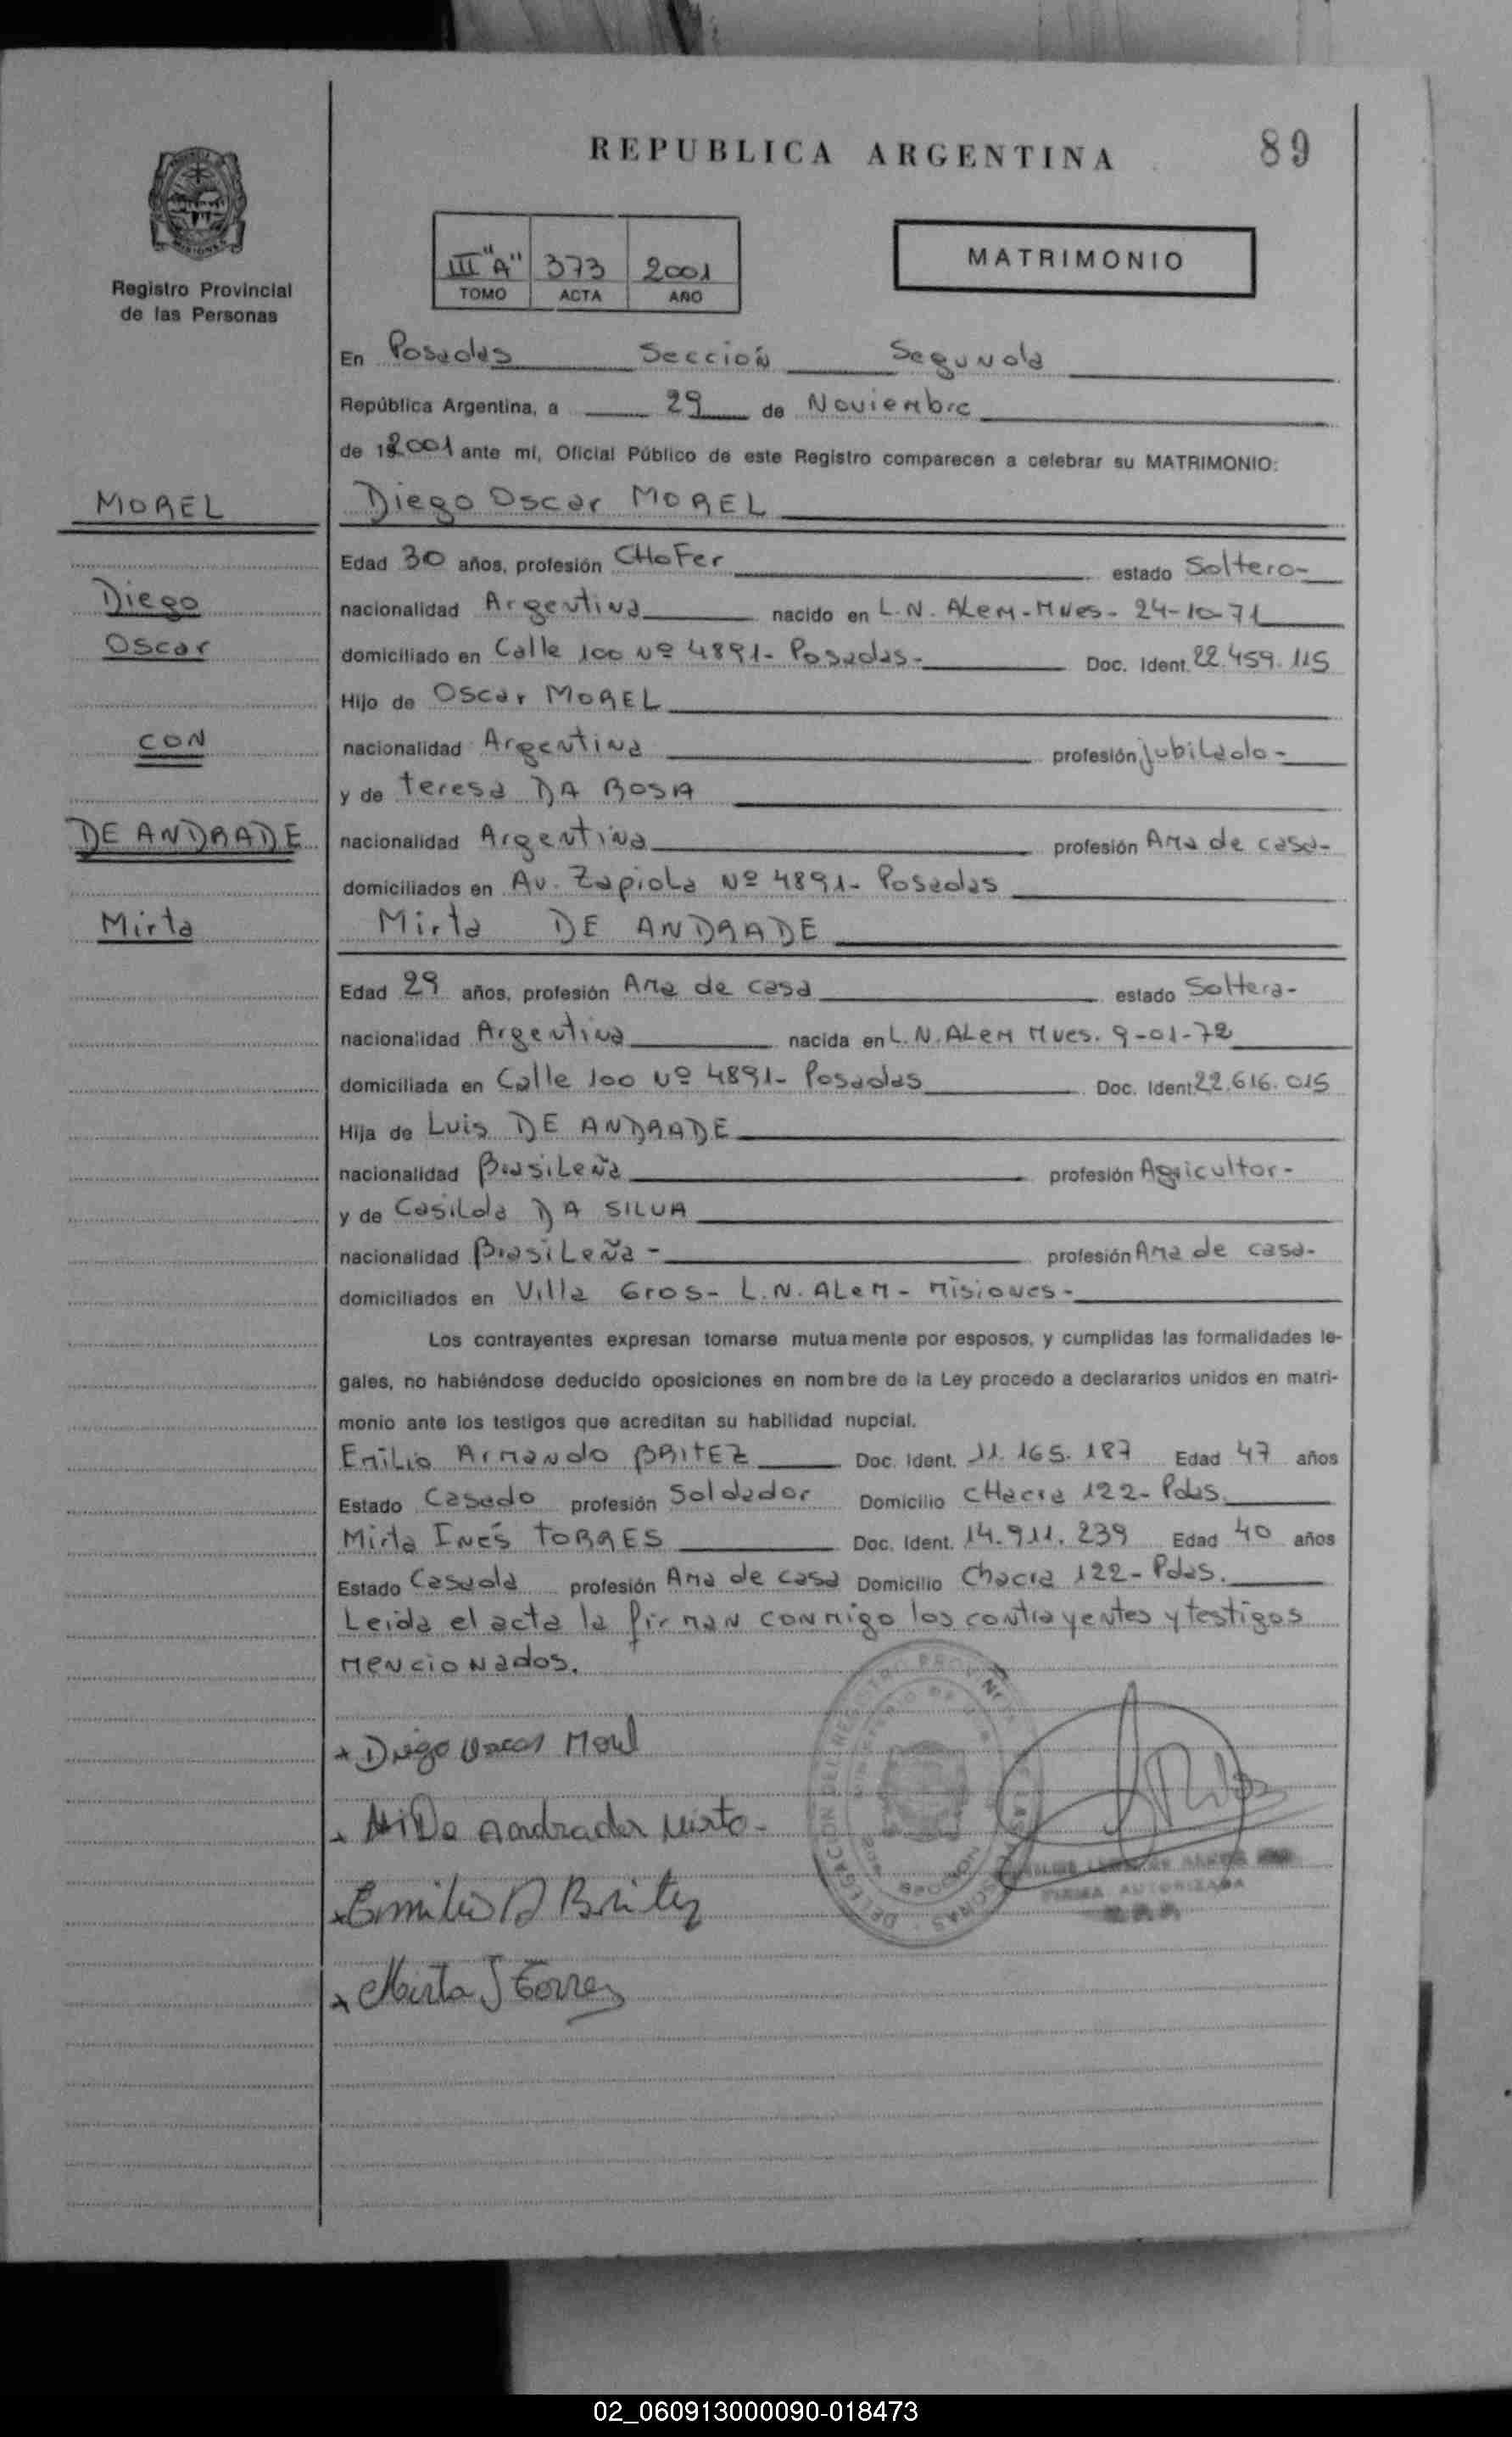 REPUBLICA ARGENTINA
89
III "A" 373 2001
TOMO ACTA AÑO
MATRIMONIO
Registro Provincial
de las Personas
En Posadas Sección Segunda
República Argentina, a 29 de Noviembre
de 2001 ante mí, Oficial Público de este Registro comparecen a celebrar su MATRIMONIO:
MOREL
Diego Oscar MOREL
Edad 30 años, profesión CHoFer estado Soltero-
Diego
nacionalidad Argentina nacido en L.N. ALeM-Mnes- 24-10-71
Oscar
domiciliado en Calle 100 Nº 4891- Posadas- Doc. Ident. 22.459.115
Hijo de Oscar MOREL
CON
nacionalidad Argentina profesión jubilado-
y de teresa DA ROSA
DE ANDRADE
nacionalidad Argentina profesión Ama de casa-
domiciliados en Av. Zapiola Nº 4891- Posadas
Mirta
Mirta DE ANDRADE
Edad 29 años, profesión Ama de casa estado Soltera-
nacionalidad Argentina nacida en L.N. ALeM Mnes. 9-01-72
domiciliada en Calle 100 Nº 4891- Posadas Doc. Ident. 22.616.015
Hija de Luis DE ANDRADE
nacionalidad BrasiLeña profesión Agricultor-
y de CasiLda DA SILVA
nacionalidad BrasiLeña- profesión Ama de casa-
domiciliados en Villa Gros- L.N. ALeM- Misiones-
Los contrayentes expresan tomarse mutuamente por esposos, y cumplidas las formalidades le-
gales, no habiéndose deducido oposiciones en nombre de la Ley procedo a declararlos unidos en matri-
monio ante los testigos que acreditan su habilidad nupcial.
Emilio Armando BRITEZ Doc. Ident. 11.165.187 Edad 47 años
Estado Casado profesión Soldador Domicilio CHacra 122- Pdas.
Mirta Inés TORRES Doc. Ident. 14.911.239 Edad 40 años
Estado Casada profesión Ama de casa Domicilio Chacra 122- Pdas.
Leida el acta la firman conmigo los contrayentes y testigos
mencionados.
x Diego Oscar Morel
x De Andrade Mirta-
x Emilio A Britez
x Mirta I Torres
FIRMA AUTORIZADA
02_060913000090-018473